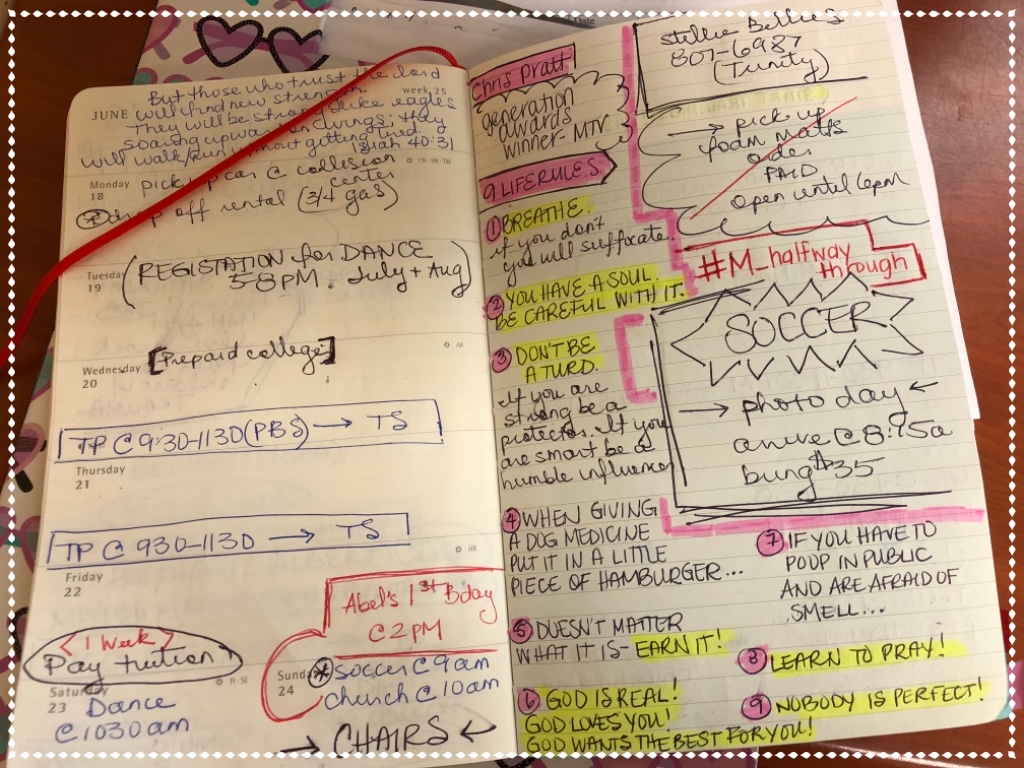 But those who trust the Lord
will find new strength.
They will be strong like eagles
soaring upward on wings; they
will walk/run without getting tired
Isiah 40:31
JUNE
week 25
Monday
18
pick up car @ collision
center
drop off rental (3/4 gas)
Tuesday
19
(REGISTATION for DANCE
5-8PM. July + Aug)
Wednesday
20
[Prepaid college]
TP @ 9:30-1130 (PBS) → TS
Thursday
21
TP @ 930-1130 → TS
Friday
22
<1 Week>
Pay tuition
Saturday
23
Dance
@ 1030am
Abel's 1st Bday
@ 2PM
Sunday
24
* soccer @ 9am
church @ 10am
→ CHAIRS ←
Date
Chris Pratt
generation
awards
winner- MTV
9 LIFE RULES
① BREATHE.
if you don't
you will suffocate.
② YOU HAVE A SOUL.
BE CAREFUL WITH IT.
③ DON'T BE
A TURD.
If you are
strong be a
protector. If you
are smart be a
humble influencer
④ WHEN GIVING
A DOG MEDICINE
PUT IT IN A LITTLE
PIECE OF HAMBURGER...
⑤ DOESN'T MATTER
WHAT IT IS- EARN IT!
⑥ GOD IS REAL!
GOD LOVES YOU!
GOD WANTS THE BEST FOR YOU!
⑦ IF YOU HAVE TO
POOP IN PUBLIC
AND ARE AFRAID OF
SMELL...
⑧ LEARN TO PRAY!
⑨ NOBODY IS PERFECT!
807-6987
(Trinity)
→ pick up
foam matts
order
PAID
open until 6pm
#M_halfway
through
SOCCER
→ photo day ←
arrive @ 8:15a
bring $35